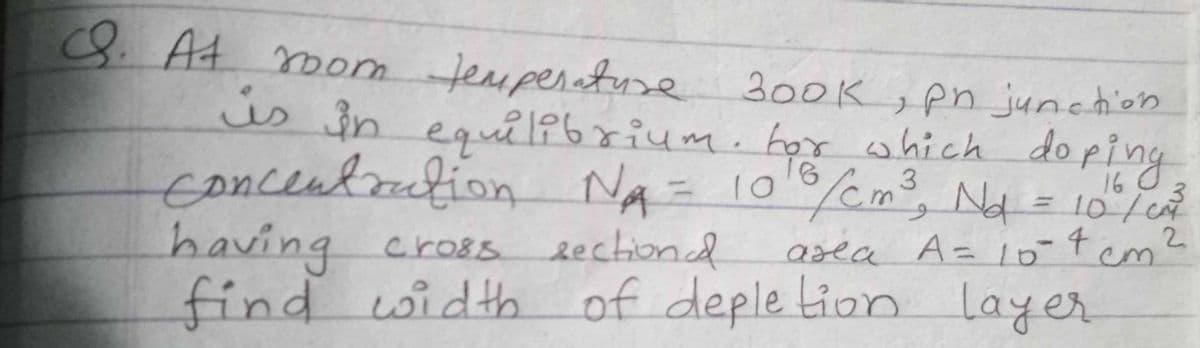 Q. At room temperature 300K, pn junction
is in equilibrium. for which doping
concentration NA = 10¹⁸/cm³, Nd = 10¹⁶/cm³
having cross sectional area A = 10⁻⁴ cm²
find width of depletion layer